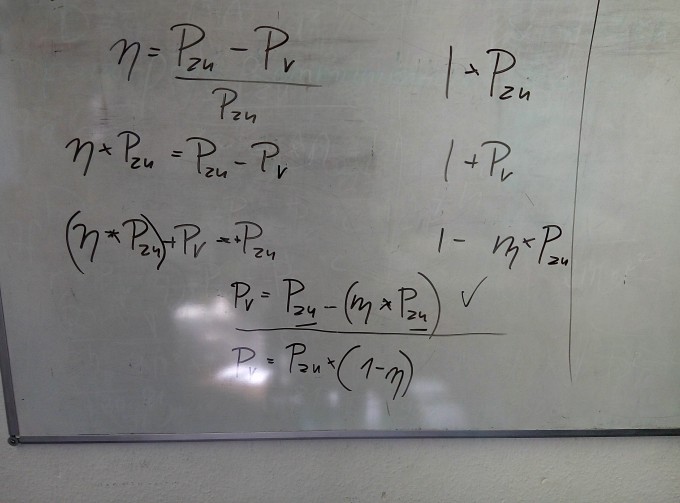 η = (P_zu - P_v) / P_zu | * P_zu
η * P_zu = P_zu - P_v | + P_v
(η * P_zu) + P_v = + P_zu | - η * P_zu
P_v = P_zu - (η * P_zu) ✓
P_v = P_zu * (1-η)